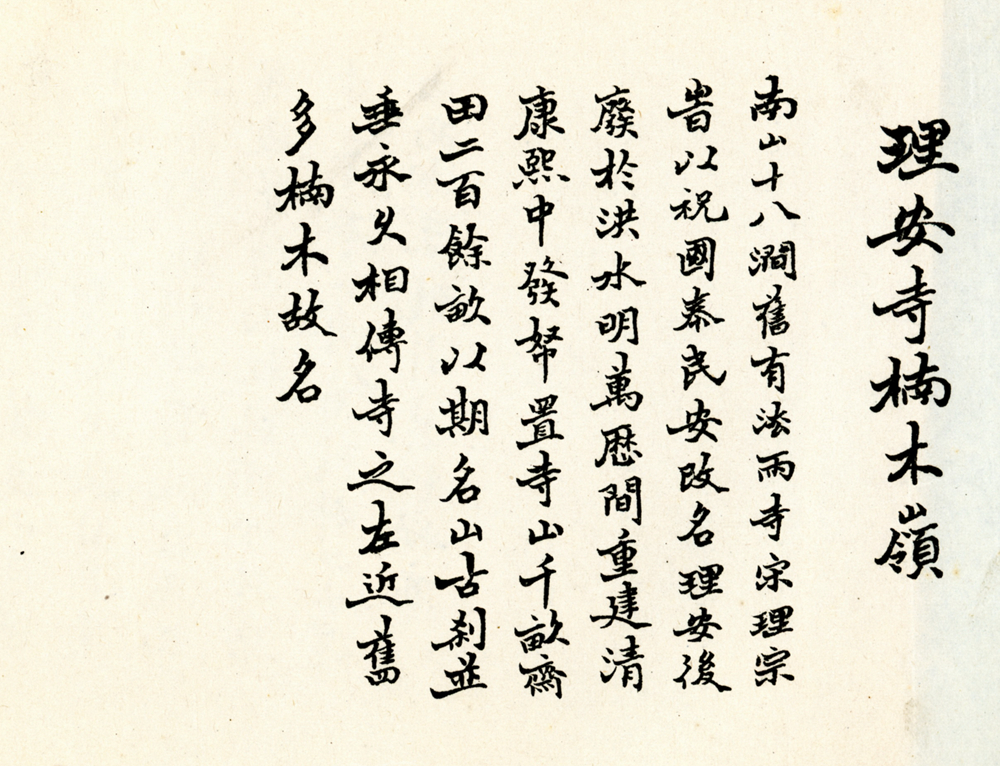 理安寺楠木嶺
南山十八澗舊有法雨寺宗理宗
旹以祝國泰民安改名理安後
廢於洪水明萬厯間重建清
康熙中發帑置寺山千畝齋
田二百餘畝以期名山古刹並
垂永久相傳寺之左近舊
多楠木故名